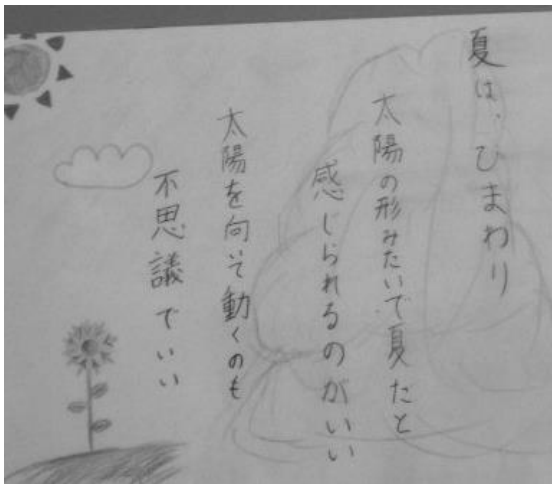 夏は、ひまわり
太陽の形みたいで夏だと
感じられるのがいい
太陽を向いて動くのも
不思議でいい